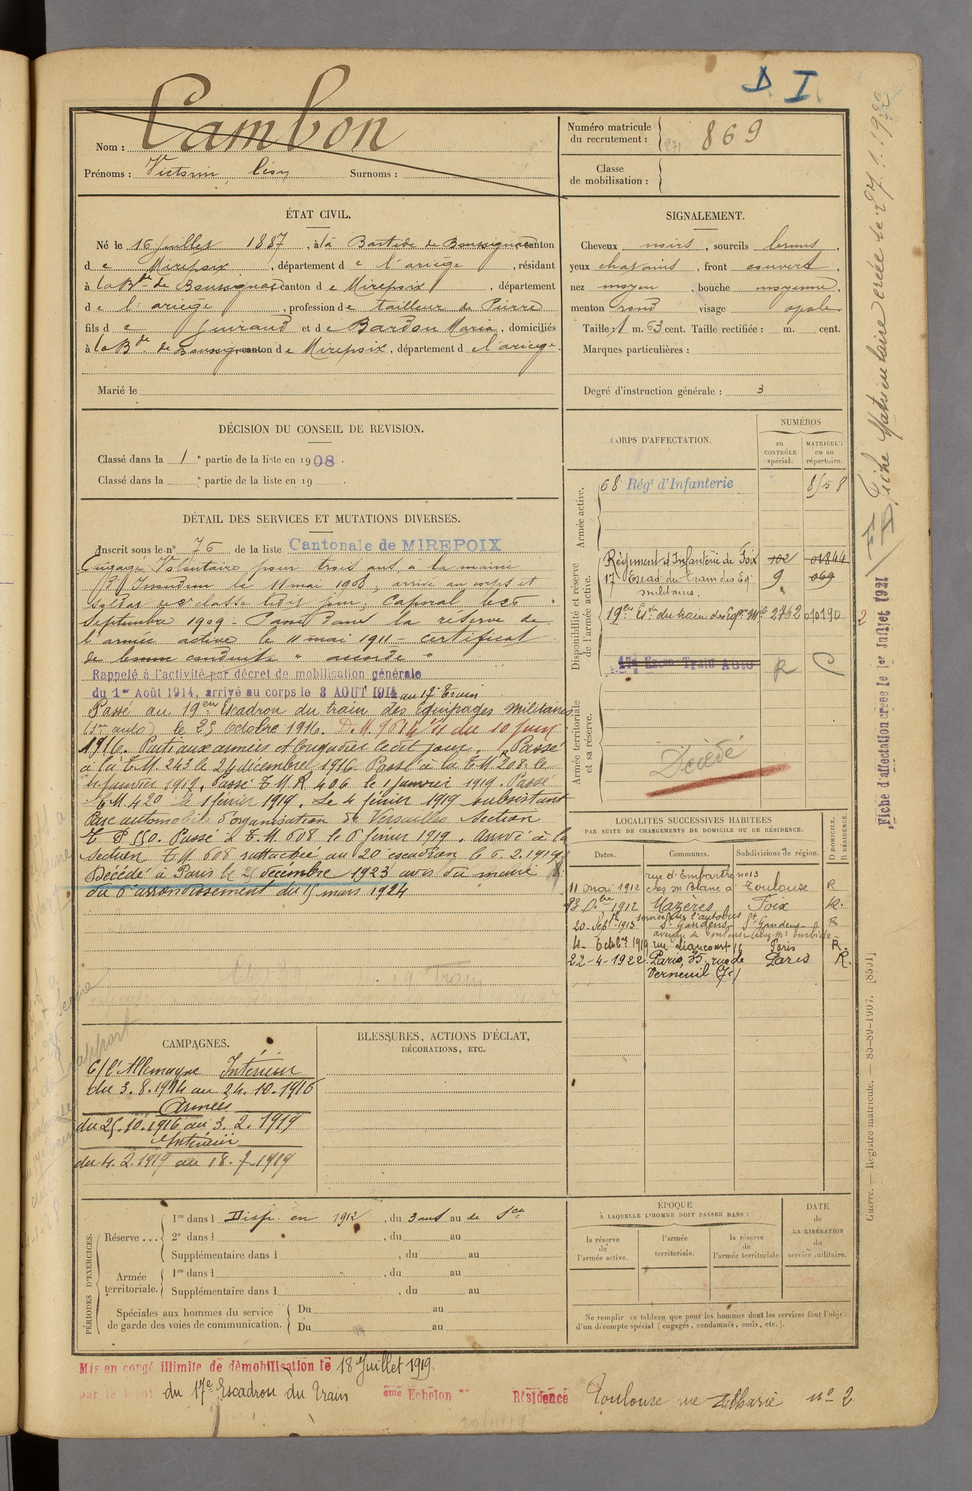 D. I.
Nom : Cambon
Prénoms : Victorin, Léon Surnoms :
Numéro matricule du recrutement : 869
Classe de mobilisation :
ÉTAT CIVIL.
Né le 16 juillet 1887, à la Bastide de Bousignac canton
de Mirepoix, département de l'ariège, résidant
à la Bde de Bousignac canton de Mirepoix, département
de l'ariège, profession de tailleur de Pierre
fils de Guiraud et de Bardou Maria, domiciliés
à la Bde de Bousignac canton de Mirepoix, département de l'ariège.
Marié le
SIGNALEMENT.
Cheveux noirs, sourcils bruns,
yeux chatains, front couvert,
nez moyen, bouche moyenne,
menton rond visage opale
Taille : 1 m. 63 cent. Taille rectifiée : m. cent.
Marques particulières :
Degré d'instruction générale : 3
DÉCISION DU CONSEIL DE REVISION.
Classé dans la 1e partie de la liste en 1908.
Classé dans la e partie de la liste en 19 .
DÉTAIL DES SERVICES ET MUTATIONS DIVERSES.
Inscrit sous le n° 76 de la liste Cantonale de MIREPOIX
Engagé Volontaire pour trois ans à la mairie
le 11 mai 1908, arrivé au corps et
soldat de 2e classe ledit jour, Caporal le 25
Septembre 1909 - Passé dans la réserve de
l'armée active le 11 mai 1911 - certificat
de bonne conduite " accordé "
Rappelé à l'activité par décret de mobilisation générale
du 1er Août 1914, arrivé au corps le 3 AOUT 1914 au 17e Train
Passé au 19eme Escadron du train des Equipages Militaires
le 25 Octobre 1916. D.M. du 10 Juin
1916. Parti aux armées ledit jour. Passé
à la T.M. 243 le 24 décembre 1916. Passé à la T.M. 208 le
janvier 1919. Passé T.M.R 406 le 1 janvier 1919. Passé
T.M. 420 le 1 février 1919. Le 4 février 1919 subsistant
Parc automobile d'organisation de Versailles Section
T.P 550. Passé à T.M. 608 le 6 février 1919. Arrivé à la
Section T.M 608 rattachée au 20 escadron le 6.2.1919
Décédé à Paris le 25 décembre 1923 avis du maire
du 6e arrondissement du 15 mars 1924
CORPS D'AFFECTATION.
NUMÉROS
au CONTRÔLE spécial.
MATRICULE ou au répertoire.
Armée active.
68 Régt d'Infanterie
Disponibilité et réserve de l'armée active.
Régiment d'Infanterie de Foix 102 01344
17 Escad. du train des Eq. militaires. 9 069
19eme Ern du train des Eqp. Mres 2762
17e Escon Train Auto
R
Armée territoriale et sa réserve.
Décédé
LOCALITÉS SUCCESSIVES HABITÉES
PAR SUITE DE CHANGEMENTS DE DOMICILE OU DE RÉSIDENCE.
Dates. Communes. Subdivisions de région. D DOMICILE. R RÉSIDENCE.
rue d'Embarthe no 13
11 mai 1912 chez M Blanc à Toulouse R
1912 Mazères Foix R.
20-Sept-1913 St Gaudens St Gaudens R
4 - Octobre 1919 rue Liancourt 16 Paris R.
22-4-1922. Paris, 35, rue de Paris R.
Verneuil (7e)
CAMPAGNES.
C/ l'Allemagne Intérieur
du 3.8.1914 au 24.10.1916
Armées
du 25.10.1916 au 3.2.1919
Intérieur
du 4.2.1919 au 18.7.1919
BLESSURES, ACTIONS D'ÉCLAT,
DÉCORATIONS, ETC.
PÉRIODES D'EXERCICES.
Réserve ...
1re dans l Disp. en 1912, du 3 ans au de Sce
2e dans l , du au
Supplémentaire dans l , du au
Armée territoriale.
1re dans l , du au
Supplémentaire dans l , du au
Spéciales aux hommes du service
de garde des voies de communication.
Du au
Du au
ÉPOQUE
À LAQUELLE L'HOMME DOIT PASSER DANS :
la réserve de l'armée active.
l'armée territoriale.
la réserve de l'armée territoriale
DATE de LA LIBÉRATION du service militaire.
Ne remplir ce tableau que pour les hommes dont les services font l'objet
d'un décompte spécial (engagés, condamnés, omis, etc.).
Mis en congé illimité de démobilisation le 18 Juillet 1919
par le dépôt du 17e Escadron du Train eme Echelon Résidence Toulouse rue n° 2
Fiche Matriculaire créée le 27.1.1922
Fiche d'affectation créée le 1er Juillet 1921
Guerre. — Registre matricule. — 85-89-1907. [8501]